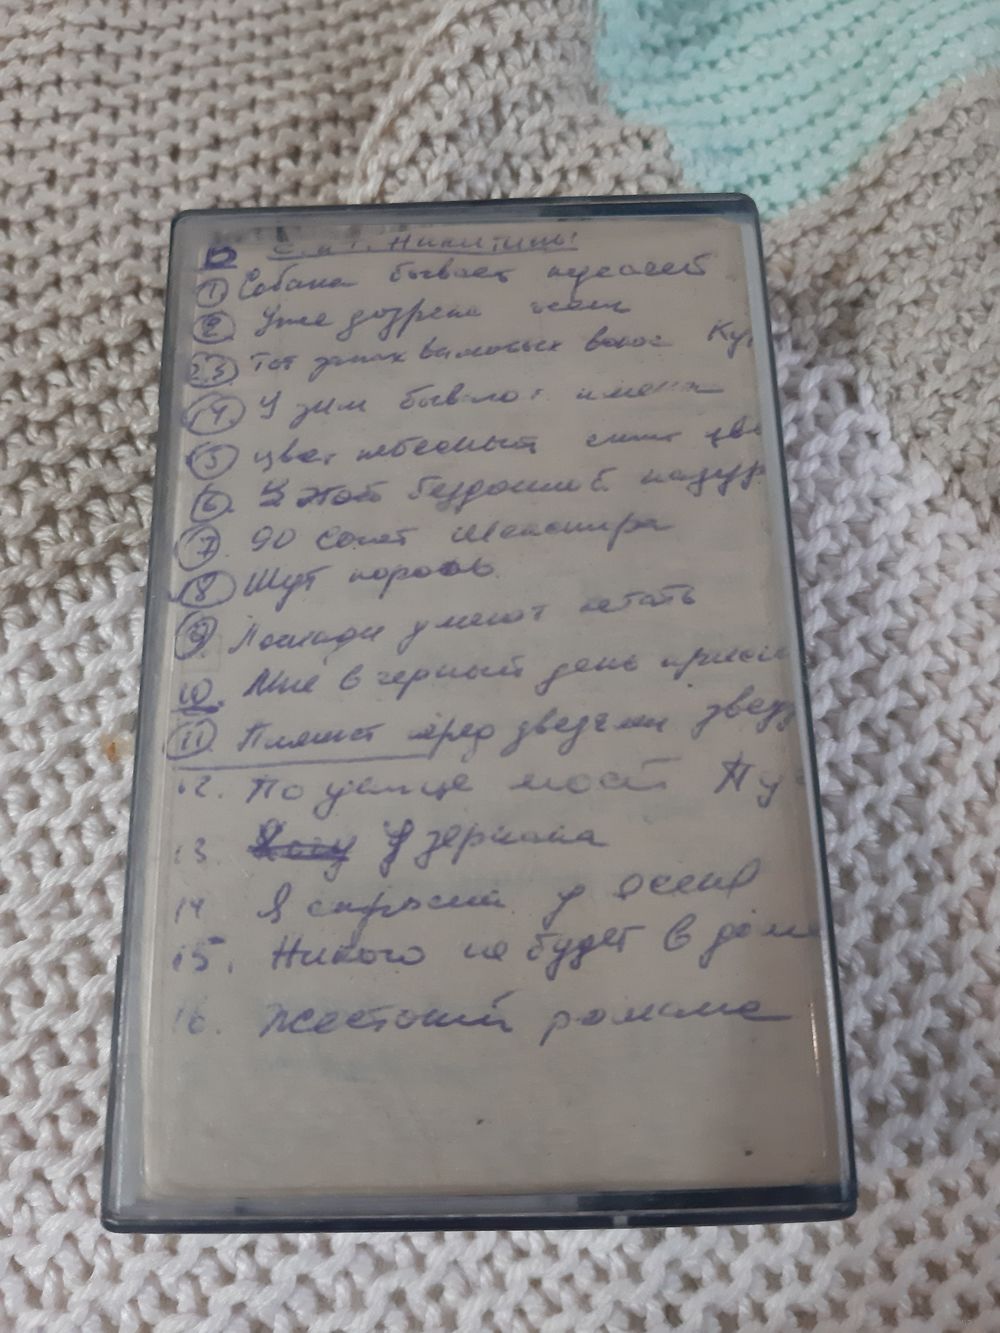 С. и Т. Никитины
1 Собака бывает кусачей
2. Уже дозрела осень
3 Тот запах вымытых волос
4. У зим бывают имена
5 Цвет небесный синий цве
6. У этой бездомной лазур
7. 90 Сонет Шекспира
8 Шут король
9. Лошади умеют летать
10. Мне в черный день присни
11. Пляшет пред звездами звезд
12. По улице моей
13. У зеркала
14 Я спросил у осени
15. Никого не будет в доме
16. Жестокий романс